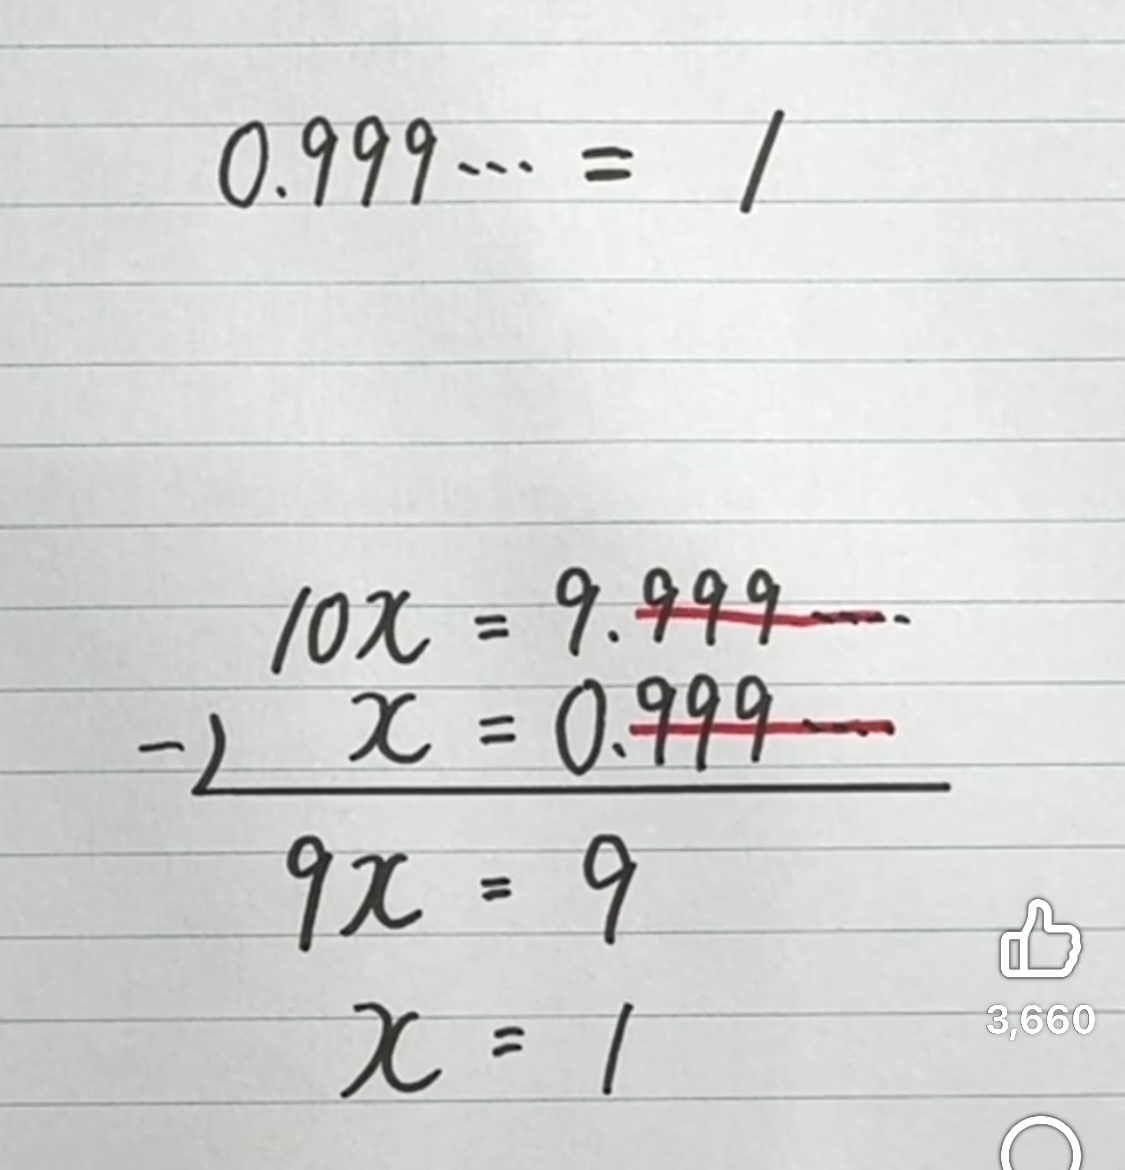 0.999… = 1
10x = 9.999…
-) x = 0.999…
9x = 9
x = 1
3,660